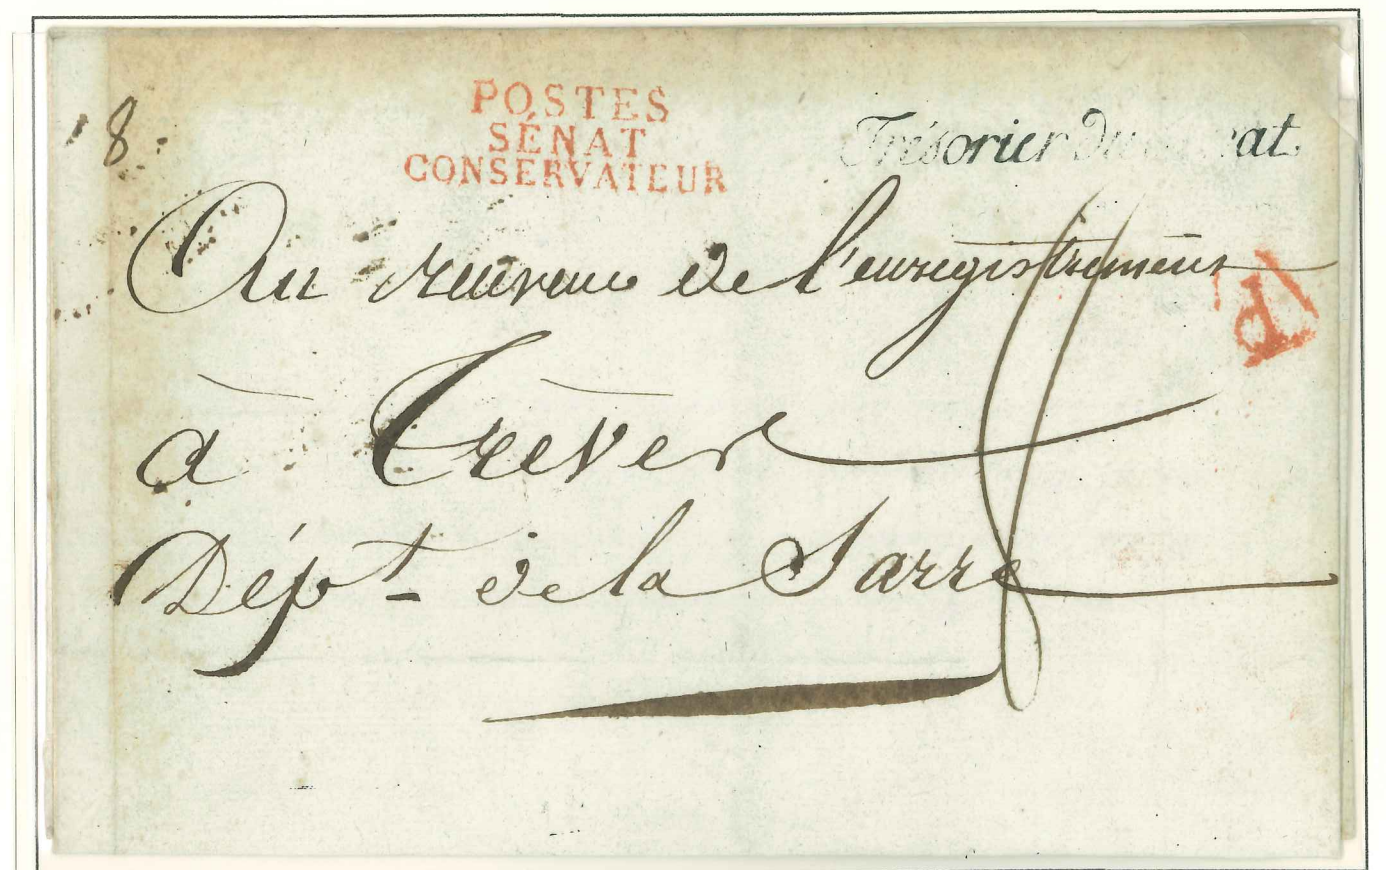 8.
POSTES
SÉNAT
CONSERVATEUR
Trésorier du
Au de l'enregistrement
à Trèves
Dépt. de la Sarre
P